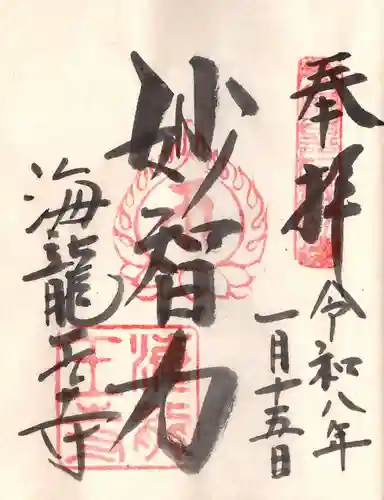 奉拝
令和八年
一月十五日
妙智力
海龍王寺